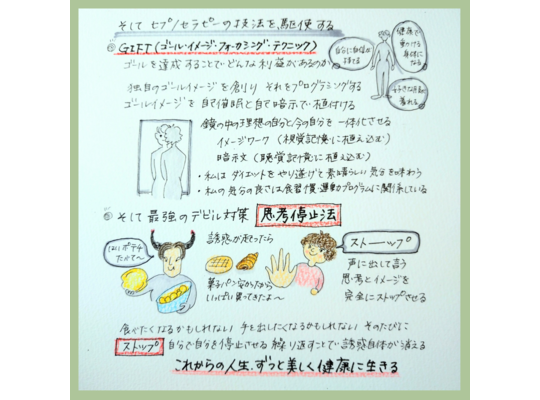 そして ヒプノセラピーの技法を、駆使する
GIFT (ゴール・イメージ・フォーカシング・テクニック)
ゴールを達成することでどんな利益があるのか
自分に自信が持てる
健康で動ける身体になる
好きな洋服が着れる
独自のゴールイメージを創り それをプログラミングする
ゴールイメージを自己催眠と自己暗示で植付ける
鏡の中の理想の自分と今の自分を 一体化させる
イメージワーク (視覚記憶に植え込む)
暗示文 (聴覚記憶に植え込む)
・私は ダイエットをやり遂げて 素晴らしい気分を味わう
・私の気分の良さは食習慣・運動プログラムに関係している
そして 最強のデビル対策 思考停止法
はい ポテチたかて〜
誘惑が起ったら
菓子パン安かったからいっぱい買ってきたよ〜
ストーップ
声に出して言う
思考とイメージを
完全にストップさせる
食べたくなるかもしれない 手を出したくなるかもしれない そのたびに
ストップ 自分で自分を停止させる 繰り返すことで誘惑自体が消える
これからの人生、ずっと美しく健康に生きる